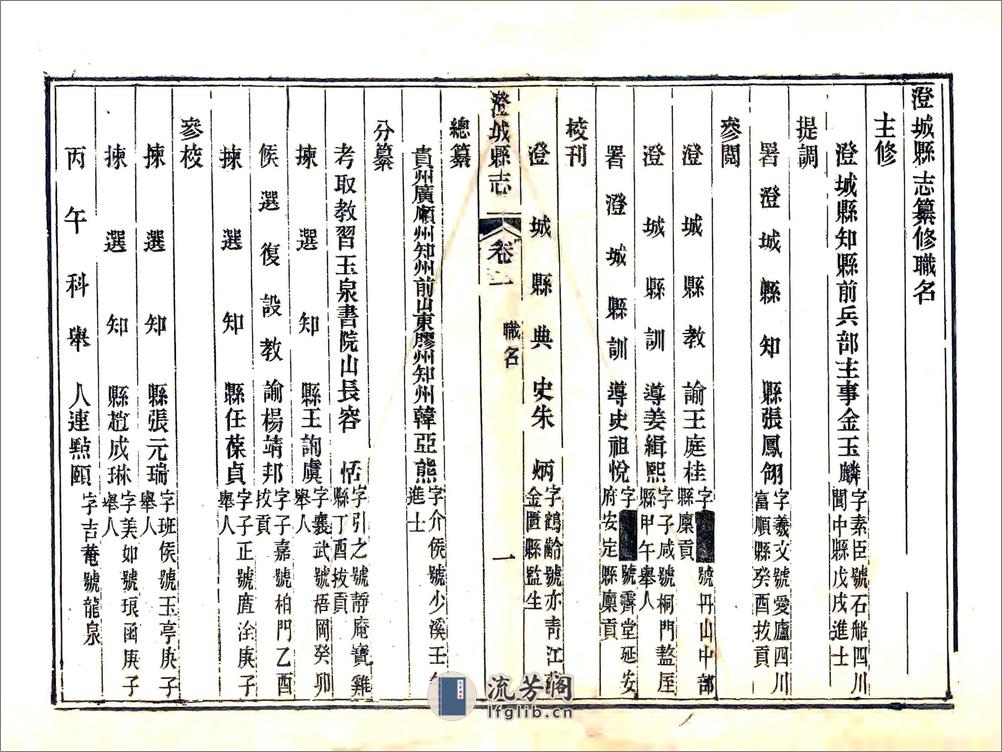 澄城縣志纂修職名
主修
澄城縣知縣前兵部主事金玉麟字素臣號石船四川閬中縣戊戌進士
提調
署澄城縣知縣張鳳翎字羲文號愛廬四川富順縣癸酉拔貢
參閱
澄城縣教諭王庭桂字號丹山中部縣廩貢
澄城縣訓導姜緝熙字子咸號桐門盩厔縣甲午舉人
署澄城縣訓導史祖悅字號霽堂延安府安定縣廩貢
校刊
澄城縣典史朱炳字鶴齡號亦青江金匱縣監生
澄城縣志
卷
職名
一
總纂
貴州廣順州知州前山東膠州知州韓亞熊字介侯號少溪壬進士
分纂
考取教習玉泉書院山長容恬字引之號靜庵寶雞縣丁酉拔貢
揀選知縣王詢虞字襄武號梧岡癸卯舉人
候選復設教諭楊靖邦字子嘉號柏門乙酉拔貢
揀選知縣任葆貞字子正號庚子舉人
參校
揀選知縣張元瑞字班侯號玉亭庚子舉人
揀選知縣趙成琳字美如號琅函庚子舉人
丙午科舉人連點頤字吉菴號龍泉
流芳閣
lfglib.cn